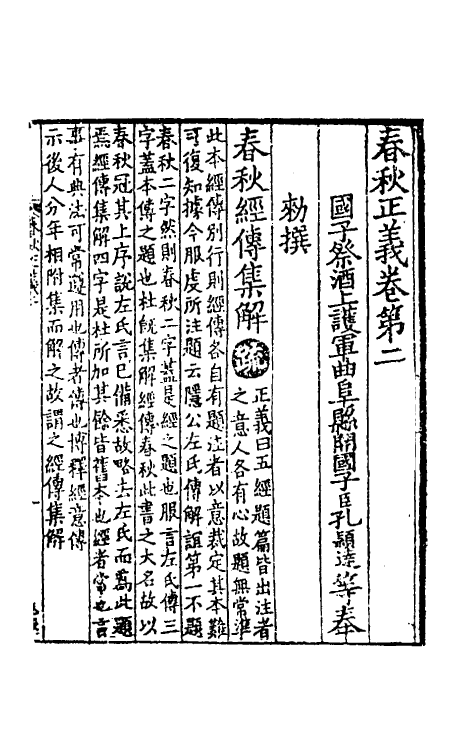 春秋正義卷第二
國子祭酒上護軍曲阜縣開國子臣孔穎達等奉
勑撰
春秋經傳集解 疏
正義曰五經題篇皆出注者
之意人各有心故題無常準
此本經傳別行則經傳各自有題注者以意裁定其本難
可復知據今服虔所注題云隱公左氏傳解誼第一不題
春秋二字然則春秋二字蓋是經之題也服言左氏傳三
字蓋本傳之題也杜既集解經傳春秋此書之大名故以
春秋冠其上序說左氏言已備悉故略去左氏而爲此題
焉經傳集解四字是杜所加其餘皆舊本也經者常也言
事有典法可常遵用也傳者傳也博釋經意傳
示後人分年相附集而解之故謂之經傳集解